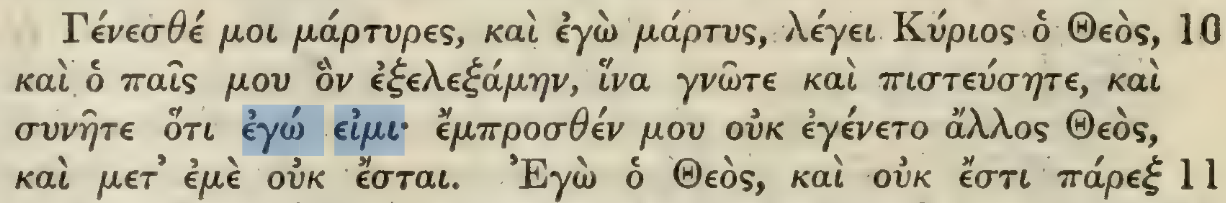 Γένεσθέ μοι μάρτυρες, καὶ ἐγὼ μάρτυς, λέγει Κύριος ὁ Θεὸς, 10
καὶ ὁ παῖς μου ὃν ἐξελεξάμην, ἵνα γνῶτε καὶ πιστεύσητε, καὶ
συνῆτε ὅτι ἐγώ εἰμι· ἔμπροσθέν μου οὐκ ἐγένετο ἄλλος Θεὸς,
καὶ μετ᾽ ἐμὲ οὐκ ἔσται. Ἐγὼ ὁ Θεὸς, καὶ οὐκ ἔστι πάρεξ 11